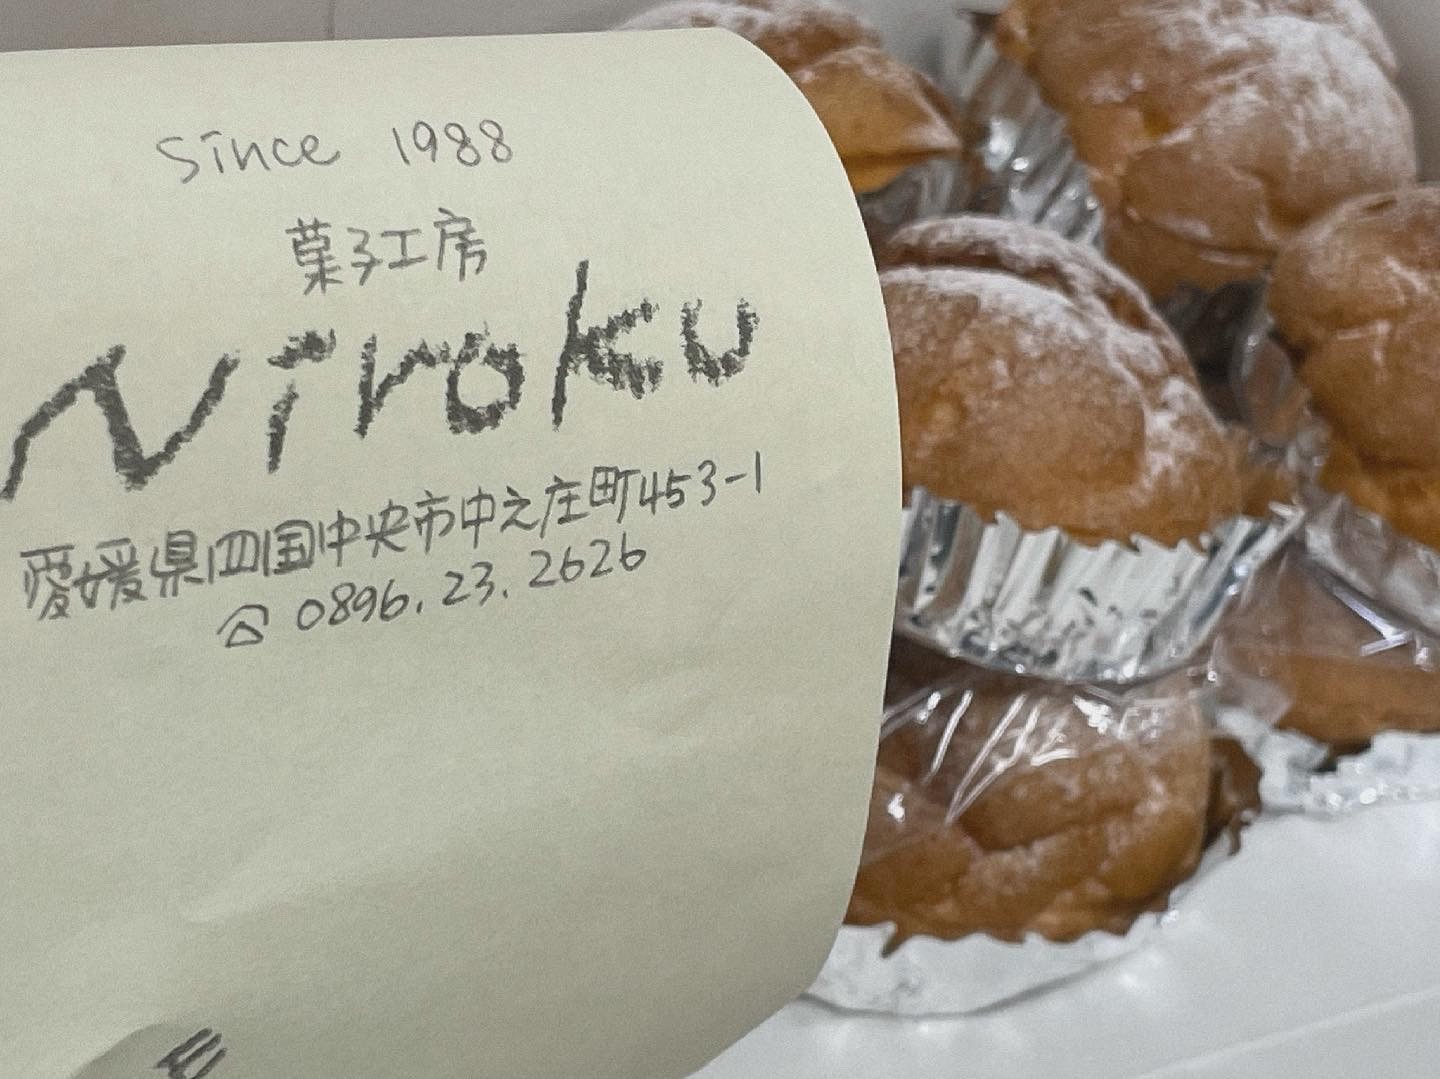 since 1988
菓子工房
Niroku
愛媛県四国中央市中之庄町453-1
☎ 0896.23.2626